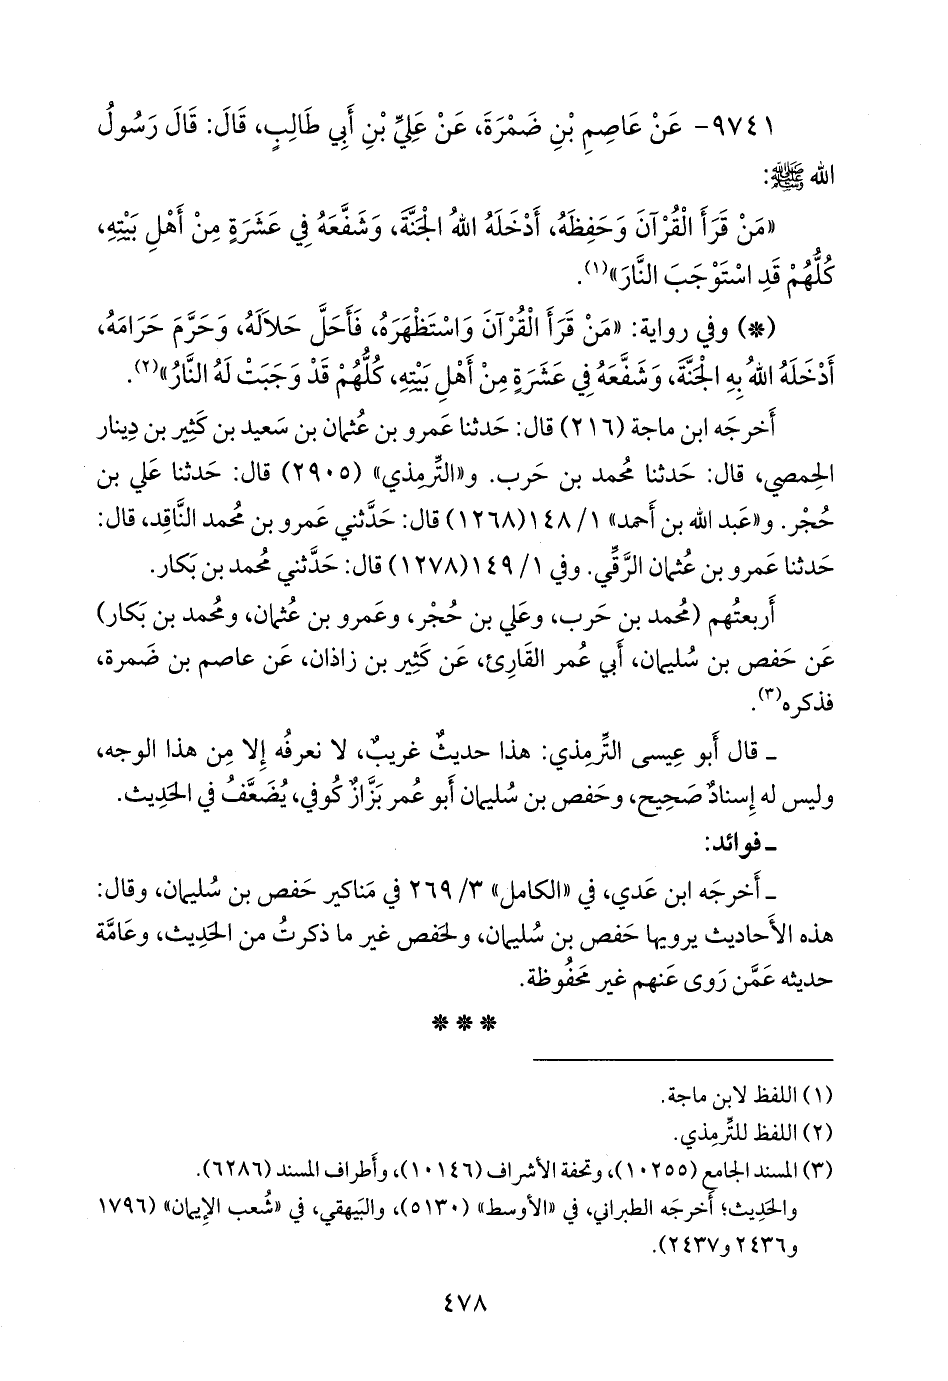 ٩٧٤١- عَنْ عَاصِمِ بْنِ ضَمْرَةَ، عَنْ عَلِيِّ بْنِ أَبِي طَالِبٍ، قَالَ: قَالَ رَسُولُ
الله ﷺ:
«مَنْ قَرَأَ الْقُرْآنَ وَحَفِظَهُ، أَدْخَلَهُ اللهُ الجَنَّةَ، وَشَفَّعَهُ فِي عَشَرَةٍ مِنْ أَهْلِ بَيْتِهِ،
كُلُّهُمْ قَدِ اسْتَوْجَبَ النَّارَ»(١).
(*) وفي رواية: «مَنْ قَرَأَ الْقُرْآنَ وَاسْتَظْهَرَهُ، فَأَحَلَّ حَلَالَهُ، وَحَرَّمَ حَرَامَهُ،
أَدْخَلَهُ اللهُ بِهِ الجَنَّةَ، وَشَفَّعَهُ فِي عَشَرَةٍ مِنْ أَهْلِ بَيْتِهِ، كُلُّهُمْ قَدْ وَجَبَتْ لَهُ النَّارُ»(٢).
أَخرجَه ابن ماجة (٢١٦) قال: حَدثنا عَمرو بن عُثمان بن سَعيد بن كَثِير بن دِينار
الحِمصي، قال: حَدثنا مُحمد بن حَرب. و«التِّرمِذي» (٢٩٠٥) قال: حَدثنا عَلي بن
حُجْر. و«عَبد الله بن أَحمد» ١/ ١٤٨(١٢٦٨) قال: حَدَّثني عَمرو بن مُحمد النَّاقِد، قال:
حَدثنا عَمرو بن عُثمان الرَّقِّي. وفي ١/ ١٤٩(١٢٧٨) قال: حَدَّثني مُحمد بن بَكار.
أَربعتُهم (مُحمد بن حَرب، وعَلي بن حُجْر، وعَمرو بن عُثمان، ومُحمد بن بَكار)
عَن حَفص بن سُليمان، أَبي عُمر القَارِئ، عَن كَثِير بن زاذان، عَن عاصم بن ضَمرة،
فذكره(٣).
ـ قال أَبو عِيسى التِّرمِذي: هذا حديثٌ غريبٌ، لا نعرفُه إِلا مِن هذا الوجه،
وليس له إِسنادٌ صَحِيح، وحَفص بن سُليمان أَبو عُمر بَزَّازٌ كُوفي، يُضَعَّفُ في الحَدِيث.
ـ فوائد:
ـ أَخرجَه ابن عَدي، في «الكامل» ٣/ ٢٦٩ في مَناكير حَفص بن سُليمان، وقال:
هذه الأَحاديث يرويها حَفص بن سُليمان، ولحَفص غير ما ذكرتُ من الحَدِيث، وعَامَّة
حديثه عَمَّن رَوى عَنهم غير مَحفُوظة.
***
(١) اللفظ لابن ماجة.
(٢) اللفظ للتِّرمِذي.
(٣) المسند الجامع (١٠٢٥٥)، وتحفة الأشراف (١٠١٤٦)، وأَطراف المسند (٦٢٨٦).
والحَدِيث؛ أَخرجَه الطبراني، في «الأَوسط» (٥١٣٠)، والبَيهقي، في «شُعب الإِيمان» (١٧٩٦
و٢٤٣٦ و٢٤٣٧).
٤٧٨